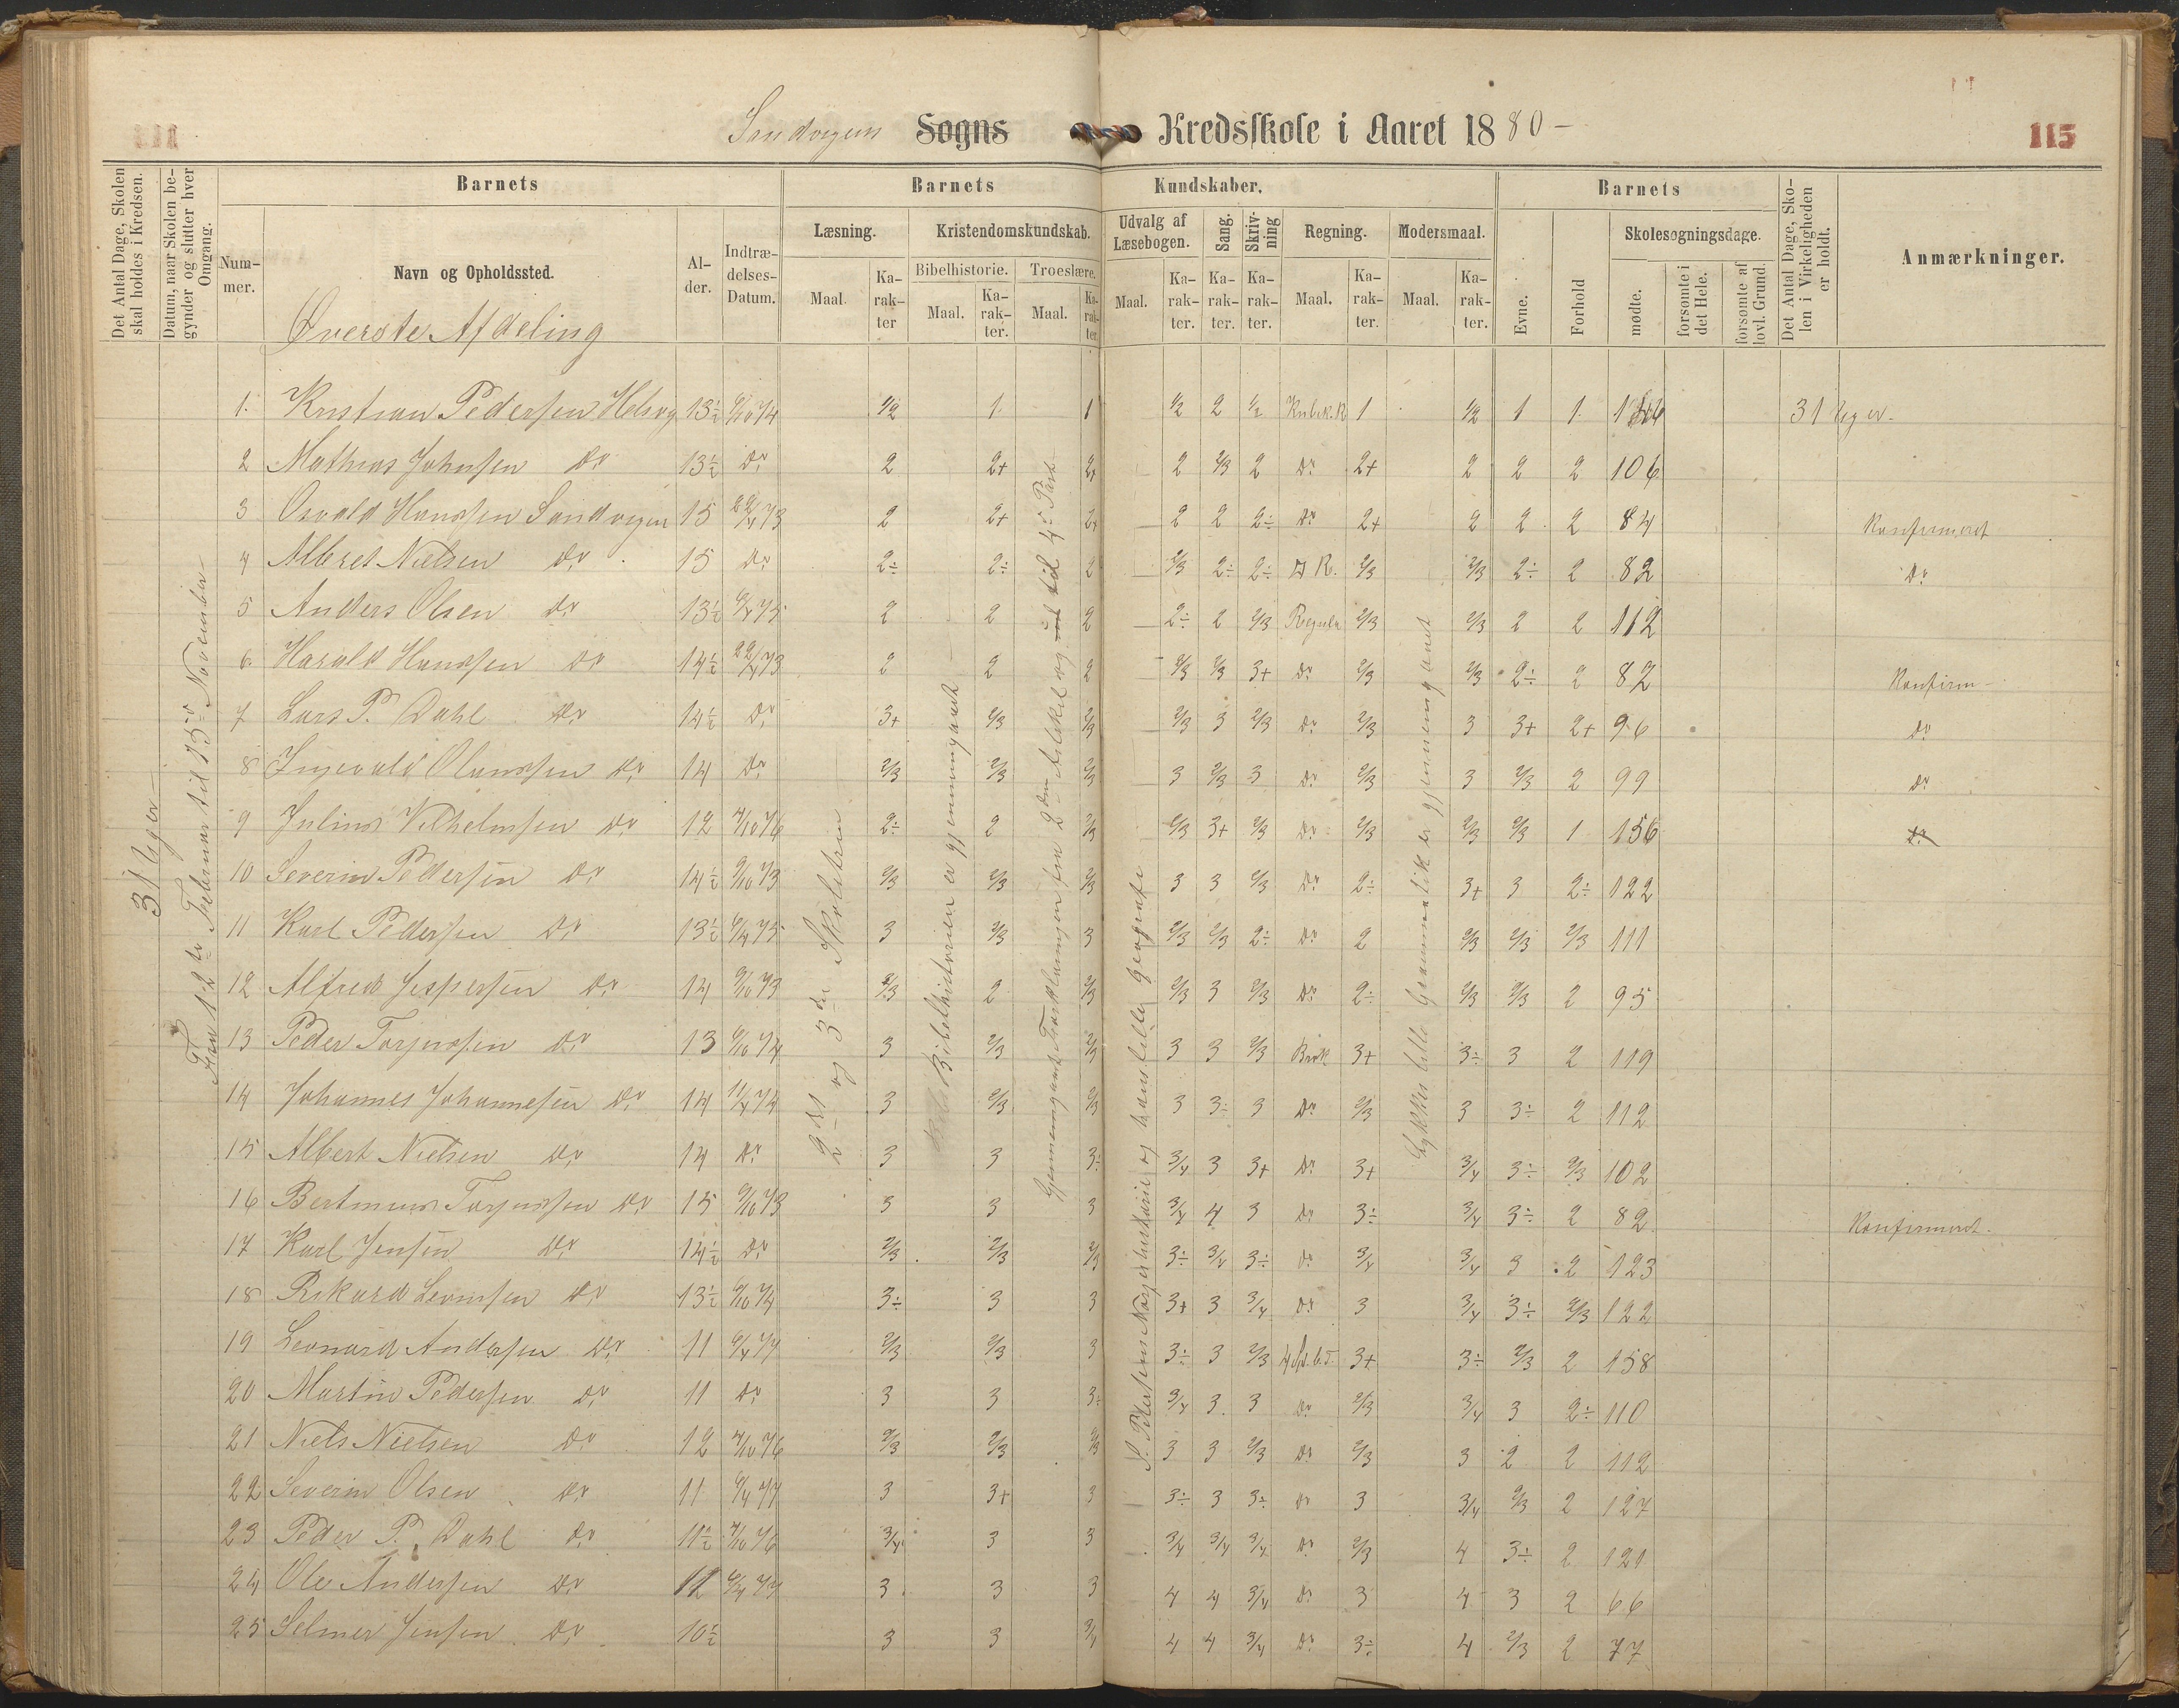 Sandvigens Sogns Kredsskole i Aaret 1880 –
115
Det Antal Dage, Skolen skal holdes i Kredsen.
Datum, naar Skolen begynder og slutter hver Omgang.
Barnets
Barnets Kundskaber.
Barnets
Det Antal Dage, Skolen i Virkeligheden er holdt.
Anmærkninger.
Nummer.
Navn og Opholdssted.
Alder.
Indtrædelses-Datum.
Læsning.
Kristendomskundskab.
Udvalg af Læsebogen.
Sang.
Skrivning
Regning.
Modersmaal.
Evne.
Forhold
Skolesøgningsdage.
Bibelhistorie.
Troeslære.
Maal.
Karakter
Maal.
Karakter.
Maal.
Karakter.
Maal.
Karakter.
Karakter.
Karakter.
Maal.
Karakter.
Maal.
Karakter.
mødte.
forsømte i det Hele.
forsømte af lovl. Grund.
Øverste Afdeling
31 Uger –
Fra 12te Februar til 15de November –
2det og 3die Skoletrin
Bibelhistorien er gjennemgaaet
Gjennemgaaet Forklaringen fra 2den Artikel og til 4de Part
S. Petersens Norgeshistorie og hans lille Geografi
Løkkes lille Grammatik er gjennemgaaet
1. Kristian Pedersen Helsvg 13½ 6/10 74 1/2 1 1 1/2 2 1/2 Kubik.R 1 1/2 1 1 31 Uger.
2 Mathias Johnsen Do 13½ Do 2 2+ 2+ 2 2/3 2 Do 2+ 2 2 2 106
3 Osvald Hanssen Sandvigen 15 22/4 73 2 2+ 2+ 2 2 2÷ Do 2+ 2 2 2 84 Konfirmeret
4 Albret Nielsen Do 15 Do 2÷ 2÷ 2 2/3 2÷ 2÷ R. 2/3 2/3 2÷ 2 82 Do
5 Anders Olsen Do 13½ 6/4 75 2 2 2 2÷ 2 2/3 Regula 2/3 2/3 2 2 112
6 Harald Hanssen Do 14½ 22/4 73 2 2 2 2/3 2/3 3+ Do 2/3 2/3 2÷ 2 82 Konfirm –
7 Lars P. Dahl Do 14½ Do 3+ 2/3 2/3 2/3 3 2/3 Do 2/3 3 3+ 2+ 96 Do
8 Ingevald Olaussen Do 14 Do 2/3 2/3 2/3 3 2/3 3 Do 2/3 3 2/3 2 99 Do
9 Julius Vilhelmsen Do 12 4/10 76 2÷ 2 2/3 2/3 3+ 2/3 Do 2/3 2/3 2/3 1 156 Do
10 Severin Pedersen Do 14½ 9/10 73 2/3 2/3 2/3 3 3 2/3 Do 2÷ 3+ 3 2÷ 122
11 Karl Pedersen Do 13½ 6/4 75 3 2/3 3 2/3 2/3 2÷ Do 2 2/3 2/3 2/3 111
12 Alfred Jespersen Do 14 9/10 73 2/3 2 2/3 2/3 3 2/3 Do 2÷ 2/3 2/3 2 95
13 Peder Torjussen Do 13 6/10 74 3 2/3 2/3 3 3 2/3 Brøk 3+ 3÷ 3 2 119
14 Johannes Johannesen Do 14 11/4 74 3 2/3 2/3 3 3÷ 3 Do 2/3 3 3÷ 2 112
15 Albert Nielsen Do 14 Do 3 3 3÷ 3/4 3 3+ Do 3+ 3/4 3÷ 2/3 102
16 Bertinius Torjussen Do 15 9/10 73 3 3 3 3/4 4 3 Do 3÷ 3/4 3÷ 2 82 Konfirmeret.
17 Karl Jensen Do 14½ Do 2/3 2/3 2/3 3÷ 3/4 3÷ Do 3/4 3/4 3 2 123
18 Rikard Levinsen Do 13½ 6/10 74 3÷ 3 3 3+ 3 3/4 Do 3 3/4 3÷ 2/3 122
19 Leonard Andersen Do 11 6/4 77 2/3 2/3 3 3÷ 3 2/3 3+ 3÷ 2/3 2 158
20 Martin Pedersen Do 11 Do 3 3 3÷ 3/4 3 3 Do 2/3 3/4 3 2÷ 110
21 Niels Nielsen Do 12 4/10 76 2/3 2/3 2/3 3 3 2/3 Do 2/3 3 2 2 112
22 Severin Olsen Do 11 6/4 77 3 3+ 3 3÷ 3 3÷ Do 3 3/4 2/3 2 127
23 Peder P. Dahl Do 11½ 4/10 76 3/4 3 3 3/4 3/4 3/4 Do 2/3 4 3÷ 2 121
24 Ole Andersen Do 12 6/4 77 3 3 3 4 4 3/4 Do 3 4 3 2 66
25 Selmer Jensen Do 10½ 3 3 3/4 4 4 3/4 Do 3÷ 4 2/3 2 77